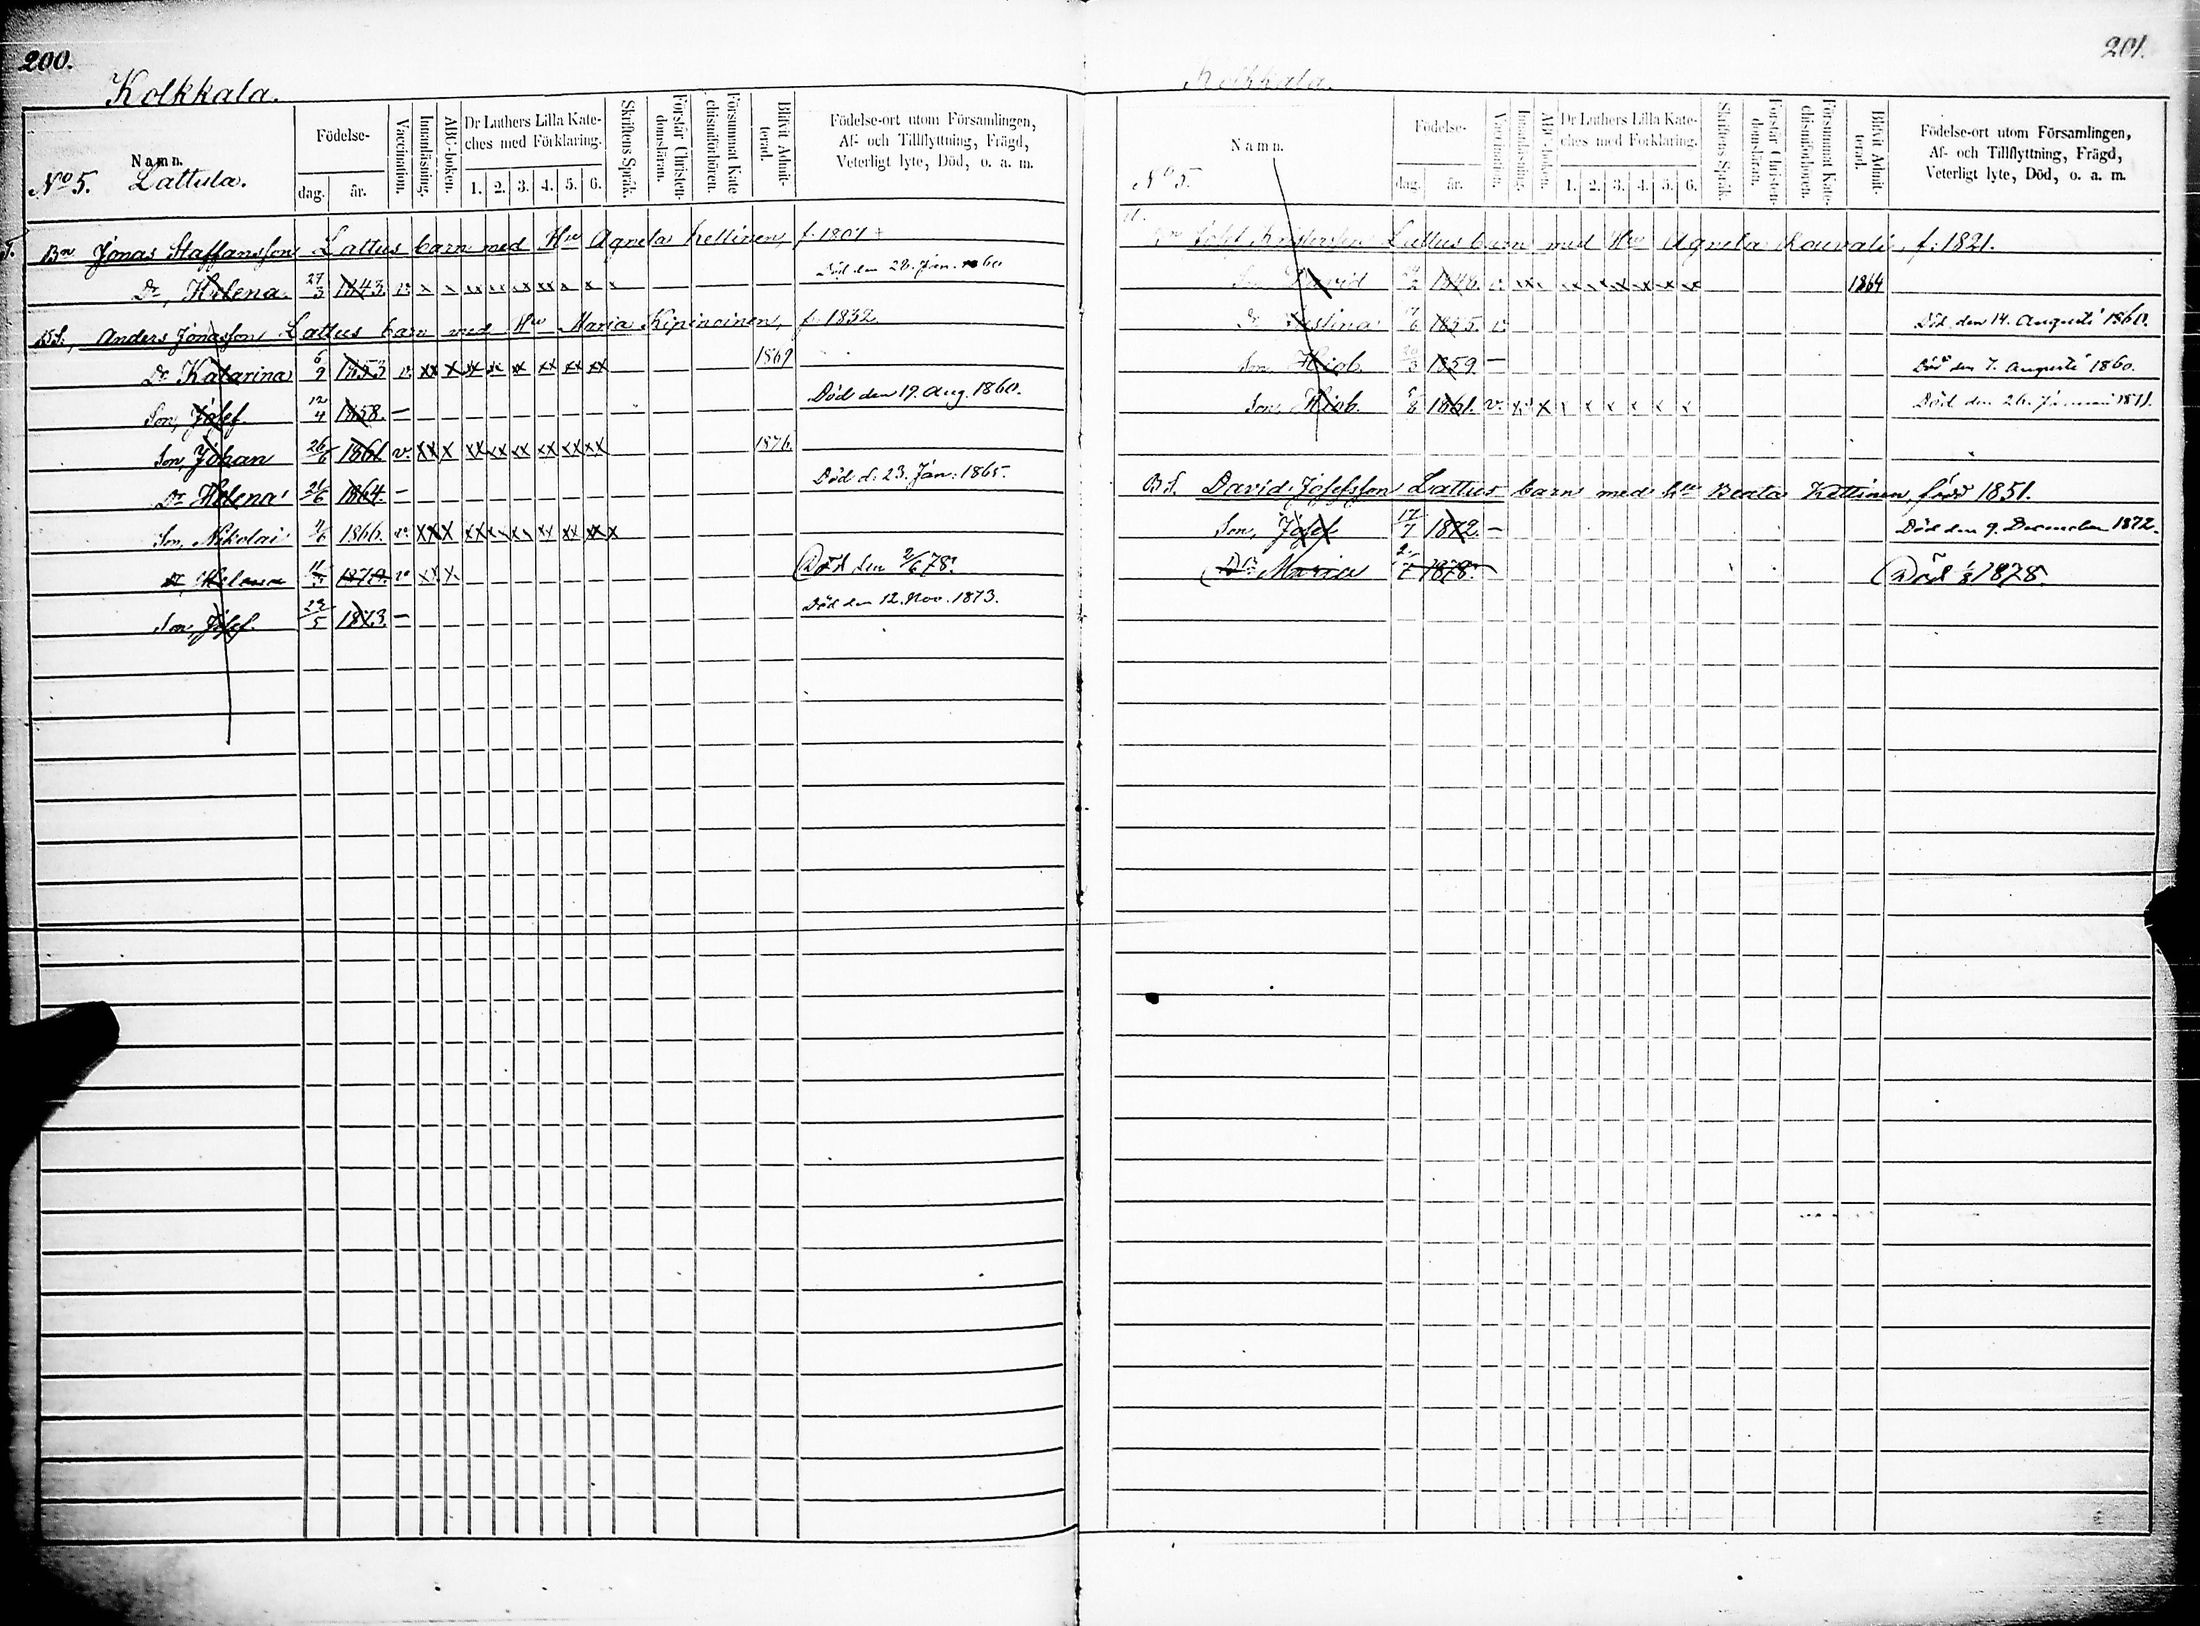 200.
Kolkkala.
Namn.
No 5. Lattula.
Födelse-
dag. år.
Vaccination.
Innanläsning.
ABC-boken.
Dr Luthers Lilla Kate-
ches med Förklaring.
1. 2. 3. 4. 5. 6.
Skriftens Språk.
Förstår Christen-
domsläran.
Försummat Kate
chismiförhören.
Blifvit Admit-
terad.
Födelse-ort utom Församlingen,
Af- och Tillflyttning, Frägd,
Veterligt lyte, Död, o. a. m.
Bn Jonas Staffansson Lattus barn med Hu Agneta Kettinen, f. 1801
Dr, Helena. 27/3 1843. v. x x xx xx xx xx x x x Död den 28. Jan. 1860
BS., Anders Jonasson Lattus barn med Hu Maria Kipinoinen, f. 1832
Dr Katarina 6/9 1853 v. xx x xx xx xx xx xx xx 1869
Son, Josef. 12/4 1858. — Död den 19. Aug. 1860.
Son, Johan 26/6 1861 v. xx x xx xx xx xx xx xx 1876.
Dr Helena 21/6 1864. — Död d. 23. Jan. 1865.
Son, Nikolai 7/6 1866. v. xx x xx xx xx xx xx xx x
Dr, Helena 1870. v xx x Död den 2/6 78.
Son, Josef. 23/5 1873. — Död den 12. Nov. 1873.
201.
Kolkkala.
Namn.
No 5.
Födelse-
dag. år.
Vaccination.
Innanläsning.
ABC-boken.
Dr Luthers Lilla Kate-
ches med Förklaring.
1. 2. 3. 4. 5. 6.
Skriftens Språk.
Förstår Christen-
domsläran.
Försummat Kate-
chismiförhören.
Blifvit Admit-
terad.
Födelse-ort utom Församlingen,
Af- och Tillflyttning, Frägd,
Veterligt lyte, Död, o. a. m.
Josef Lattus barn med Hu Agneta f. 1821.
Son David 1848. v. xx x x x x x x x 1864
Dr Justina 1855. v. Död den 14. Augusti 1860.
Son, Hiob. 1859. — Död den 7. Augusti 1860.
Son, Hiob. 1861. v. x x x x x x x x Död den 26. Januari 1871.
BS. David Josefsson Lattus barn med hu Beata Kettinen, född 1851.
Son, Josef 17/7 1872. — Död den 9. December 1872.
Dr Maria 1878. Död 1/8 1878.